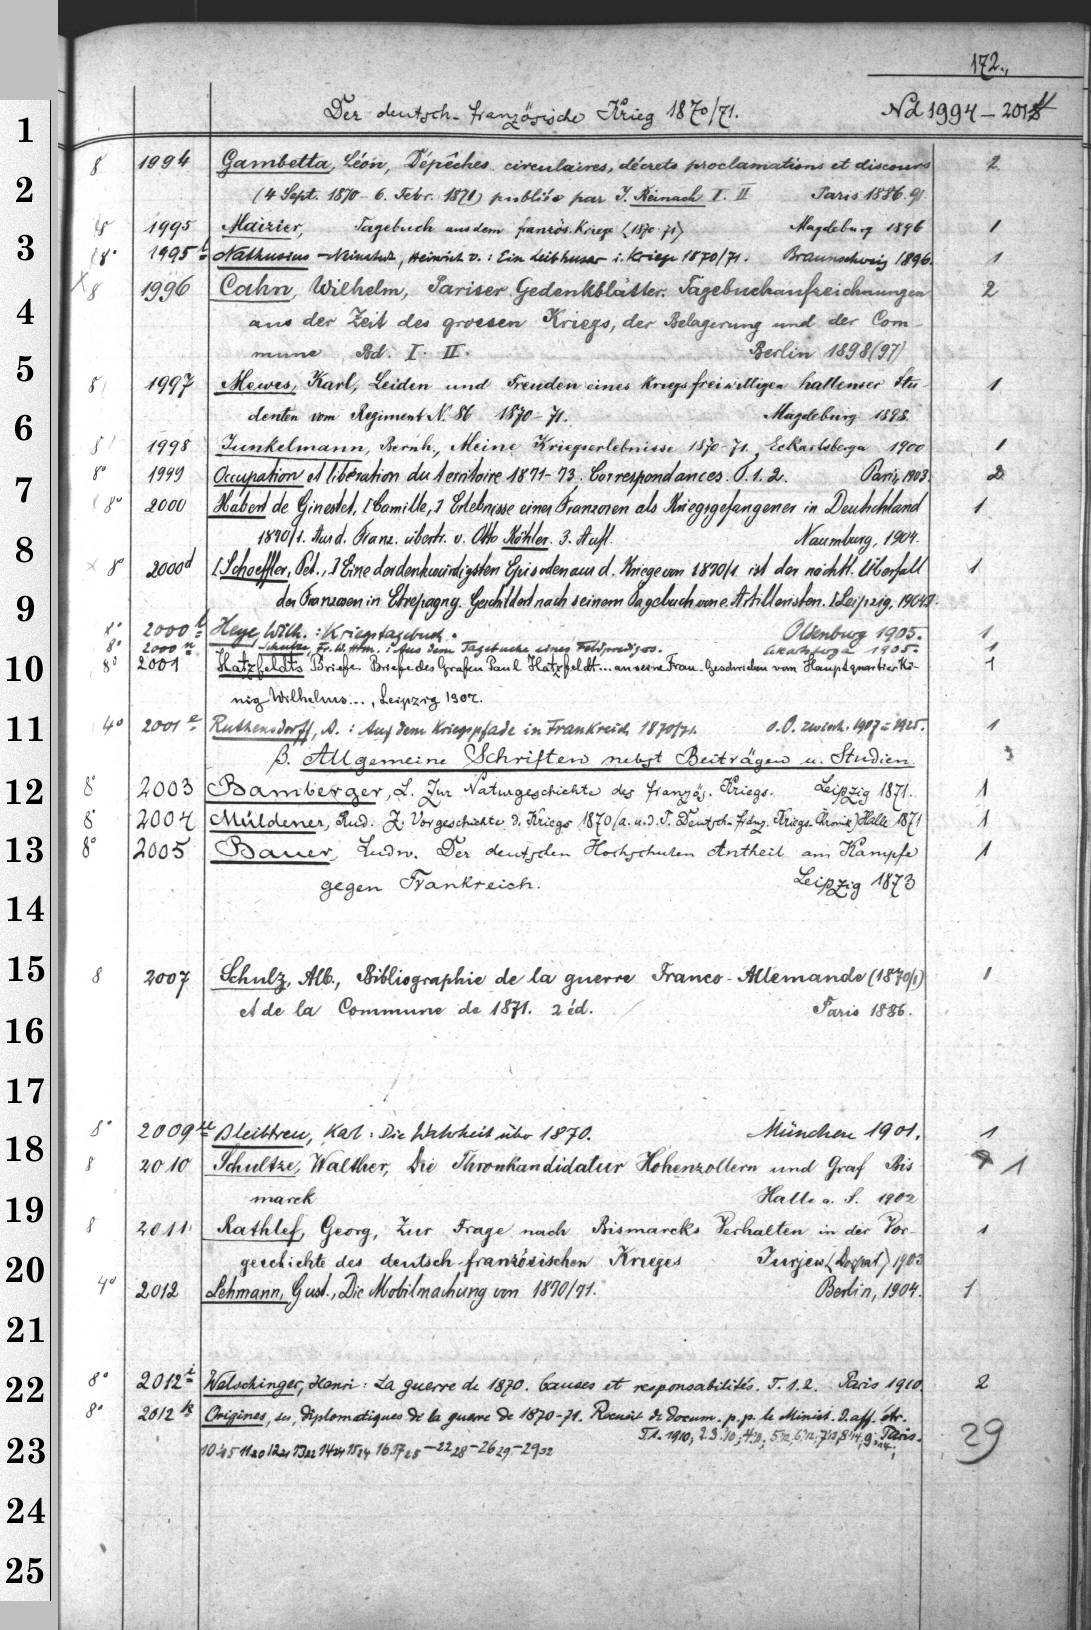 172.
Der deutsch-französische Krieg 1870/71. Nd 1994 – 201
1
2
3
4
5
6
7
8
9
10
11
12
13
14
15
16
17
18
19
20
21
22
23
24
25
8 1994 Gambetta, Léon, Dépêches circulaires, décrets proclamations et discours 2
(4 Sept. 1870 – 6. Febr. 1871) publiés par J. Reinach I. II Paris 1886.91.
8 1995 Maizier, Tagebuch aus dem französ. Kriege (1870-71) Magdeburg 1896 1
8° 1995 b Nathusius-Neinstedt, Heinrich v.: Ein Leibhusar i. Kriege 1870/71. Braunschweig 1896. 1
x 8 1996 Cahn, Wilhelm, Pariser Gedenkblätter. Tagebuchaufzeichnungen 2
aus der Zeit des grossen Kriegs, der Belagerung und der Com-
mune Bd. I. II. Berlin 1898(97)
8 1997 Mewes, Karl, Leiden und Freuden eines kriegsfreiwilligen hallenser Stu-
denten vom Regiment N. 86 1870-71. Magdeburg 1898. 1
8 1998 Junkelmann, Bernh., Meine Kriegserlebnisse 1870-71. Eckartsberga 1900 1
8° 1999 Occupation et libération du territoire 1871-73. Correspondances. T. 1. 2. Paris, 1903. 2
8° 2000 Habert de Ginestet, [Camille,] Erlebnisse eines Franzosen als Kriegsgefangener in Deutschland 1
1870/1. Aus d. Franz. übertr. v. Otto Köhler. 3. Aufl. Naumburg, 1904.
x 8° 2000d [Schoeffler, Pet.,] Eine der denkwürdigsten Episoden aus d. Kriege von 1870/1 ist der nächtl. Überfall 1
der Franzosen in Etrepagny. Geschildert nach seinem Tagebuch von e. Artilleristen. [Leipzig, 1904].
8° 2000 Heye, Wilh.: Kriegstagebuch. Oldenburg 1905. 1
8° 2000 n Schultze, Fr. W. Hm.: Aus dem Tagebuche eines Feldpredigers. 1905. 1
8° 2001 Hatzfeldts Briefe. Briefe des Grafen Paul Hatzfeldt... an seine Frau. Geschrieben vom Hauptquartier Kö- 1
nig Wilhelms..., Leipzig 1907.
4° 2001 e Ruthensdorff, A.: Auf dem Kriegspfade in Frankreich 1870/71. o.O. zwisch. 1907 u. 1925. 1
β. Allgemeine Schriften nebst Beiträgen u. Studien
8° 2003 Bamberger, L. Zur Naturgeschichte des französ. Kriegs. Leipzig 1871. 1
8° 2004 Müldener, Rud. Z. Vorgeschichte d. Kriegs 1870 (a. u. d. T. Deutsch-franz. Kriegs-Chronik) Halle 1871 1
8° 2005 Bauer, Ludw. Der deutschen Hochschulen Antheil am Kampfe 1
gegen Frankreich. Leipzig 1873
8 2007 Schulz, Alb., Bibliographie de la guerre Franco-Allemande (1870/1) 1
et de la Commune de 1871. 2 éd. Paris 1886.
8° 2009 Bleibtreu, Karl: Die Wahrheit über 1870. München 1901. 1
8 2010 Schultze, Walther, Die Thronkandidatur Hohenzollern und Graf Bis 1
marck Halle a. S. 1902
8 2011 Rathlef, Georg, Zur Frage nach Bismarcks Verhalten in der Vor- 1
geschichte des deutsch-französischen Krieges Jurjew (Dorpat) 1903
4° 2012 Lehmann, Gust., Die Mobilmachung von 1870/71. Berlin, 1904. 1
8° 2012 i Welschinger, Henri: La guerre de 1870. Causes et responsabilités. T. 1. 2. Paris 1910. 2
8° 2012 k Origines, les, diplomatiques de la guerre de 1870-71. Recueil de docum. p. p. le Minist. d. aff. étr.
T. 1. 1910; Paris.
29